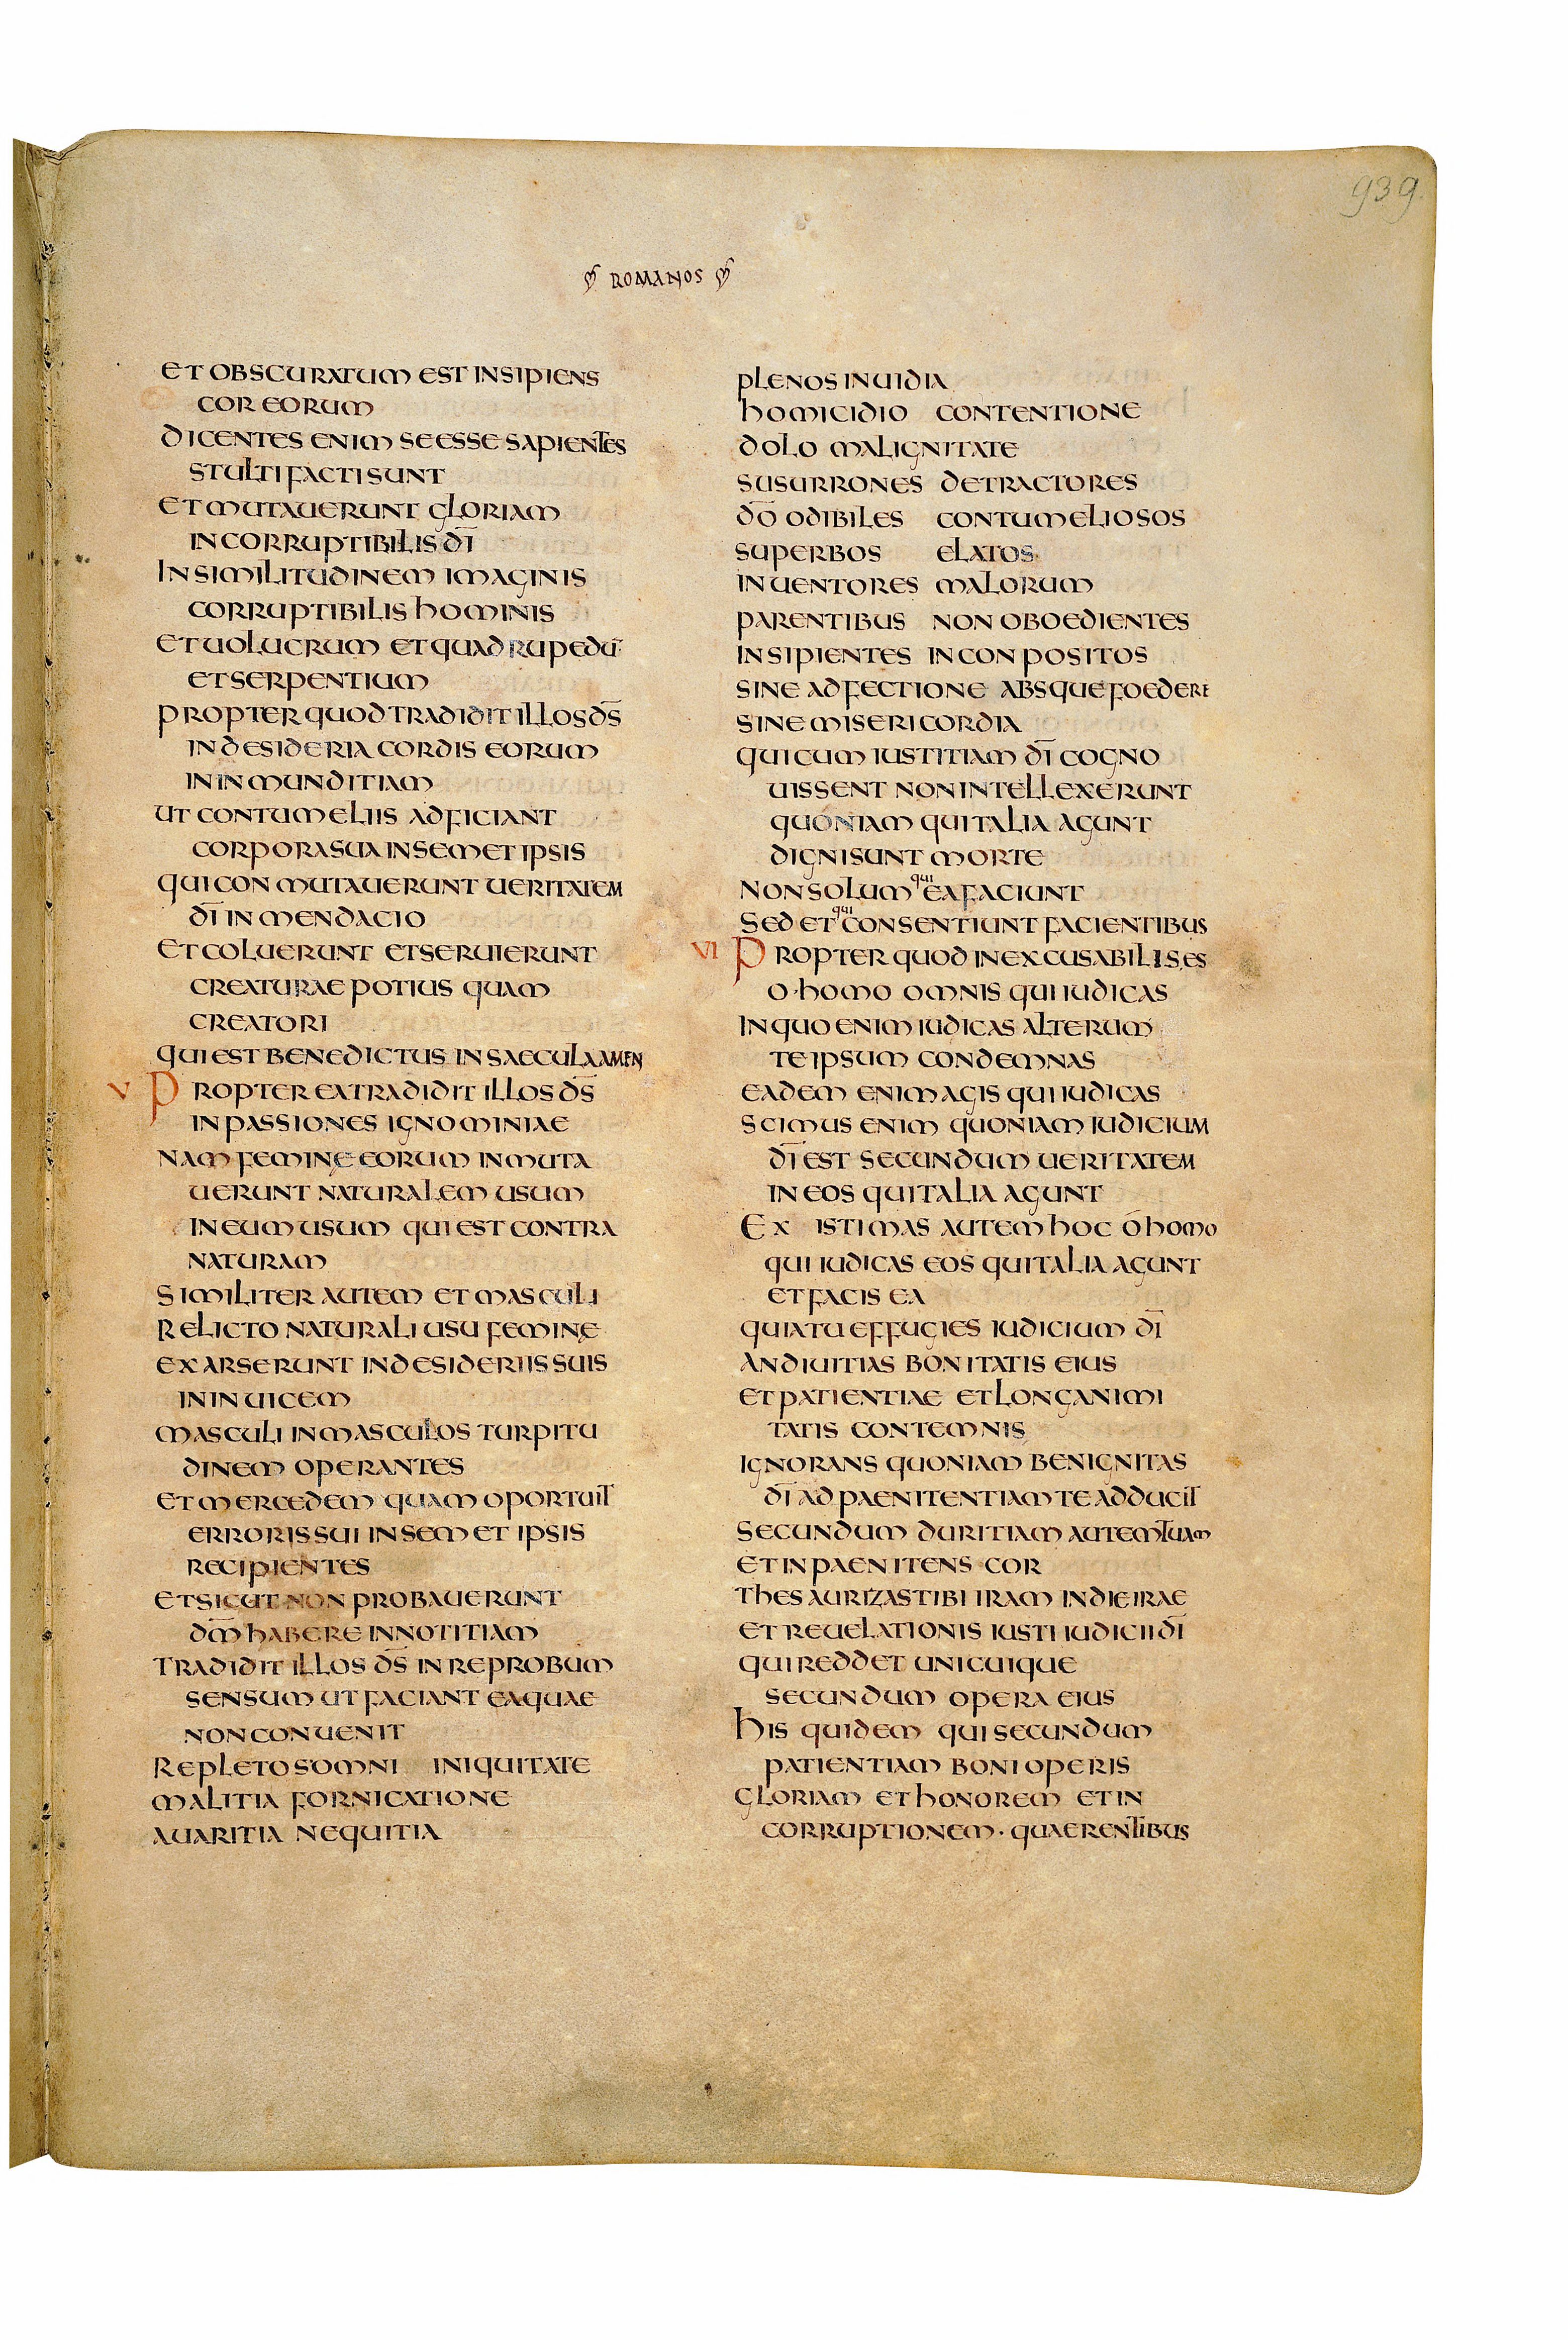 939
ROMANOS
ET OBSCURATUM EST INSIPIENS
COR EORUM
DICENTES ENIM SE ESSE SAPIENTES
STULTI FACTI SUNT
ET MUTAUERUNT GLORIAM
INCORRUPTIBILIS DI̅
IN SIMILITUDINEM IMAGINIS
CORRUPTIBILIS HOMINIS
ET UOLUCRUM ET QUADRUPEDU̅
ET SERPENTIUM
PROPTER QUOD TRADIDIT ILLOS DS̅
IN DESIDERIA CORDIS EORUM
IN INMUNDITIAM
UT CONTUMELIIS ADFICIANT
CORPORA SUA IN SEMET IPSIS
QUI CONMUTAUERUNT UERITATEM
DI̅ IN MENDACIO
ET COLUERUNT ET SERUIERUNT
CREATURAE POTIUS QUAM
CREATORI
QUI EST BENEDICTUS IN SAECULA AMEN
V PROPTEREA TRADIDIT ILLOS DS̅
IN PASSIONES IGNOMINIAE
NAM FEMINĘ EORUM INMUTA
UERUNT NATURALEM USUM
IN EUM USUM QUI EST CONTRA
NATURAM
SIMILITER AUTEM ET MASCULI
RELICTO NATURALI USU FEMINĘ
EXARSERUNT IN DESIDERIIS SUIS
IN INUICEM
MASCULI IN MASCULOS TURPITU
DINEM OPERANTES
ET MERCEDEM QUAM OPORTUIT
ERRORIS SUI IN SEMET IPSIS
RECIPIENTES
ET SICUT NON PROBAUERUNT
DM̅ HABERE IN NOTITIAM
TRADIDIT ILLOS DS̅ IN REPROBUM
SENSUM UT FACIANT EA QUAE
NON CONUENIT
REPLETOS OMNI INIQUITATE
MALITIA FORNICATIONE
AUARITIA NEQUITIA
PLENOS INUIDIA
HOMICIDIO CONTENTIONE
DOLO MALIGNITATE
SUSURRONES DETRACTORES
DO̅ ODIBILES CONTUMELIOSOS
SUPERBOS ELATOS
INUENTORES MALORUM
PARENTIBUS NON OBOEDIENTES
INSIPIENTES INCONPOSITOS
SINE ADFECTIONE ABSQUE FOEDERE
SINE MISERICORDIA
QUI CUM IUSTITIAM DI̅ COGNO
UISSENT NON INTELLEXERUNT
QUONIAM QUI TALIA AGUNT
DIGNI SUNT MORTE
NON SOLUM QUI EA FACIUNT
SED ET QUI CONSENTIUNT FACIENTIBUS
VI PROPTER QUOD INEXCUSABILIS ES
O HOMO OMNIS QUI IUDICAS
IN QUO ENIM IUDICAS ALTERUM
TE IPSUM CONDEMNAS
EADEM ENIM AGIS QUI IUDICAS
SCIMUS ENIM QUONIAM IUDICIUM
DI̅ EST SECUNDUM UERITATEM
IN EOS QUI TALIA AGUNT
EXISTIMAS AUTEM HOC O HOMO
QUI IUDICAS EOS QUI TALIA AGUNT
ET FACIS EA
QUIA TU EFFUGIES IUDICIUM DI̅
AN DIUITIAS BONITATIS EIUS
ET PATIENTIAE ET LONGANIMI
TATIS CONTEMNIS
IGNORANS QUONIAM BENIGNITAS
DI̅ AD PAENITENTIAM TE ADDUCIT
SECUNDUM DURITIAM AUTEM TUAM
ET INPAENITENS COR
THESAURIZAS TIBI IRAM IN DIE IRAE
ET REUELATIONIS IUSTI IUDICII DI̅
QUI REDDET UNICUIQUE
SECUNDUM OPERA EIUS
HIS QUIDEM QUI SECUNDUM
PATIENTIAM BONI OPERIS
GLORIAM ET HONOREM ET IN
CORRUPTIONEM · QUAERENTIBUS